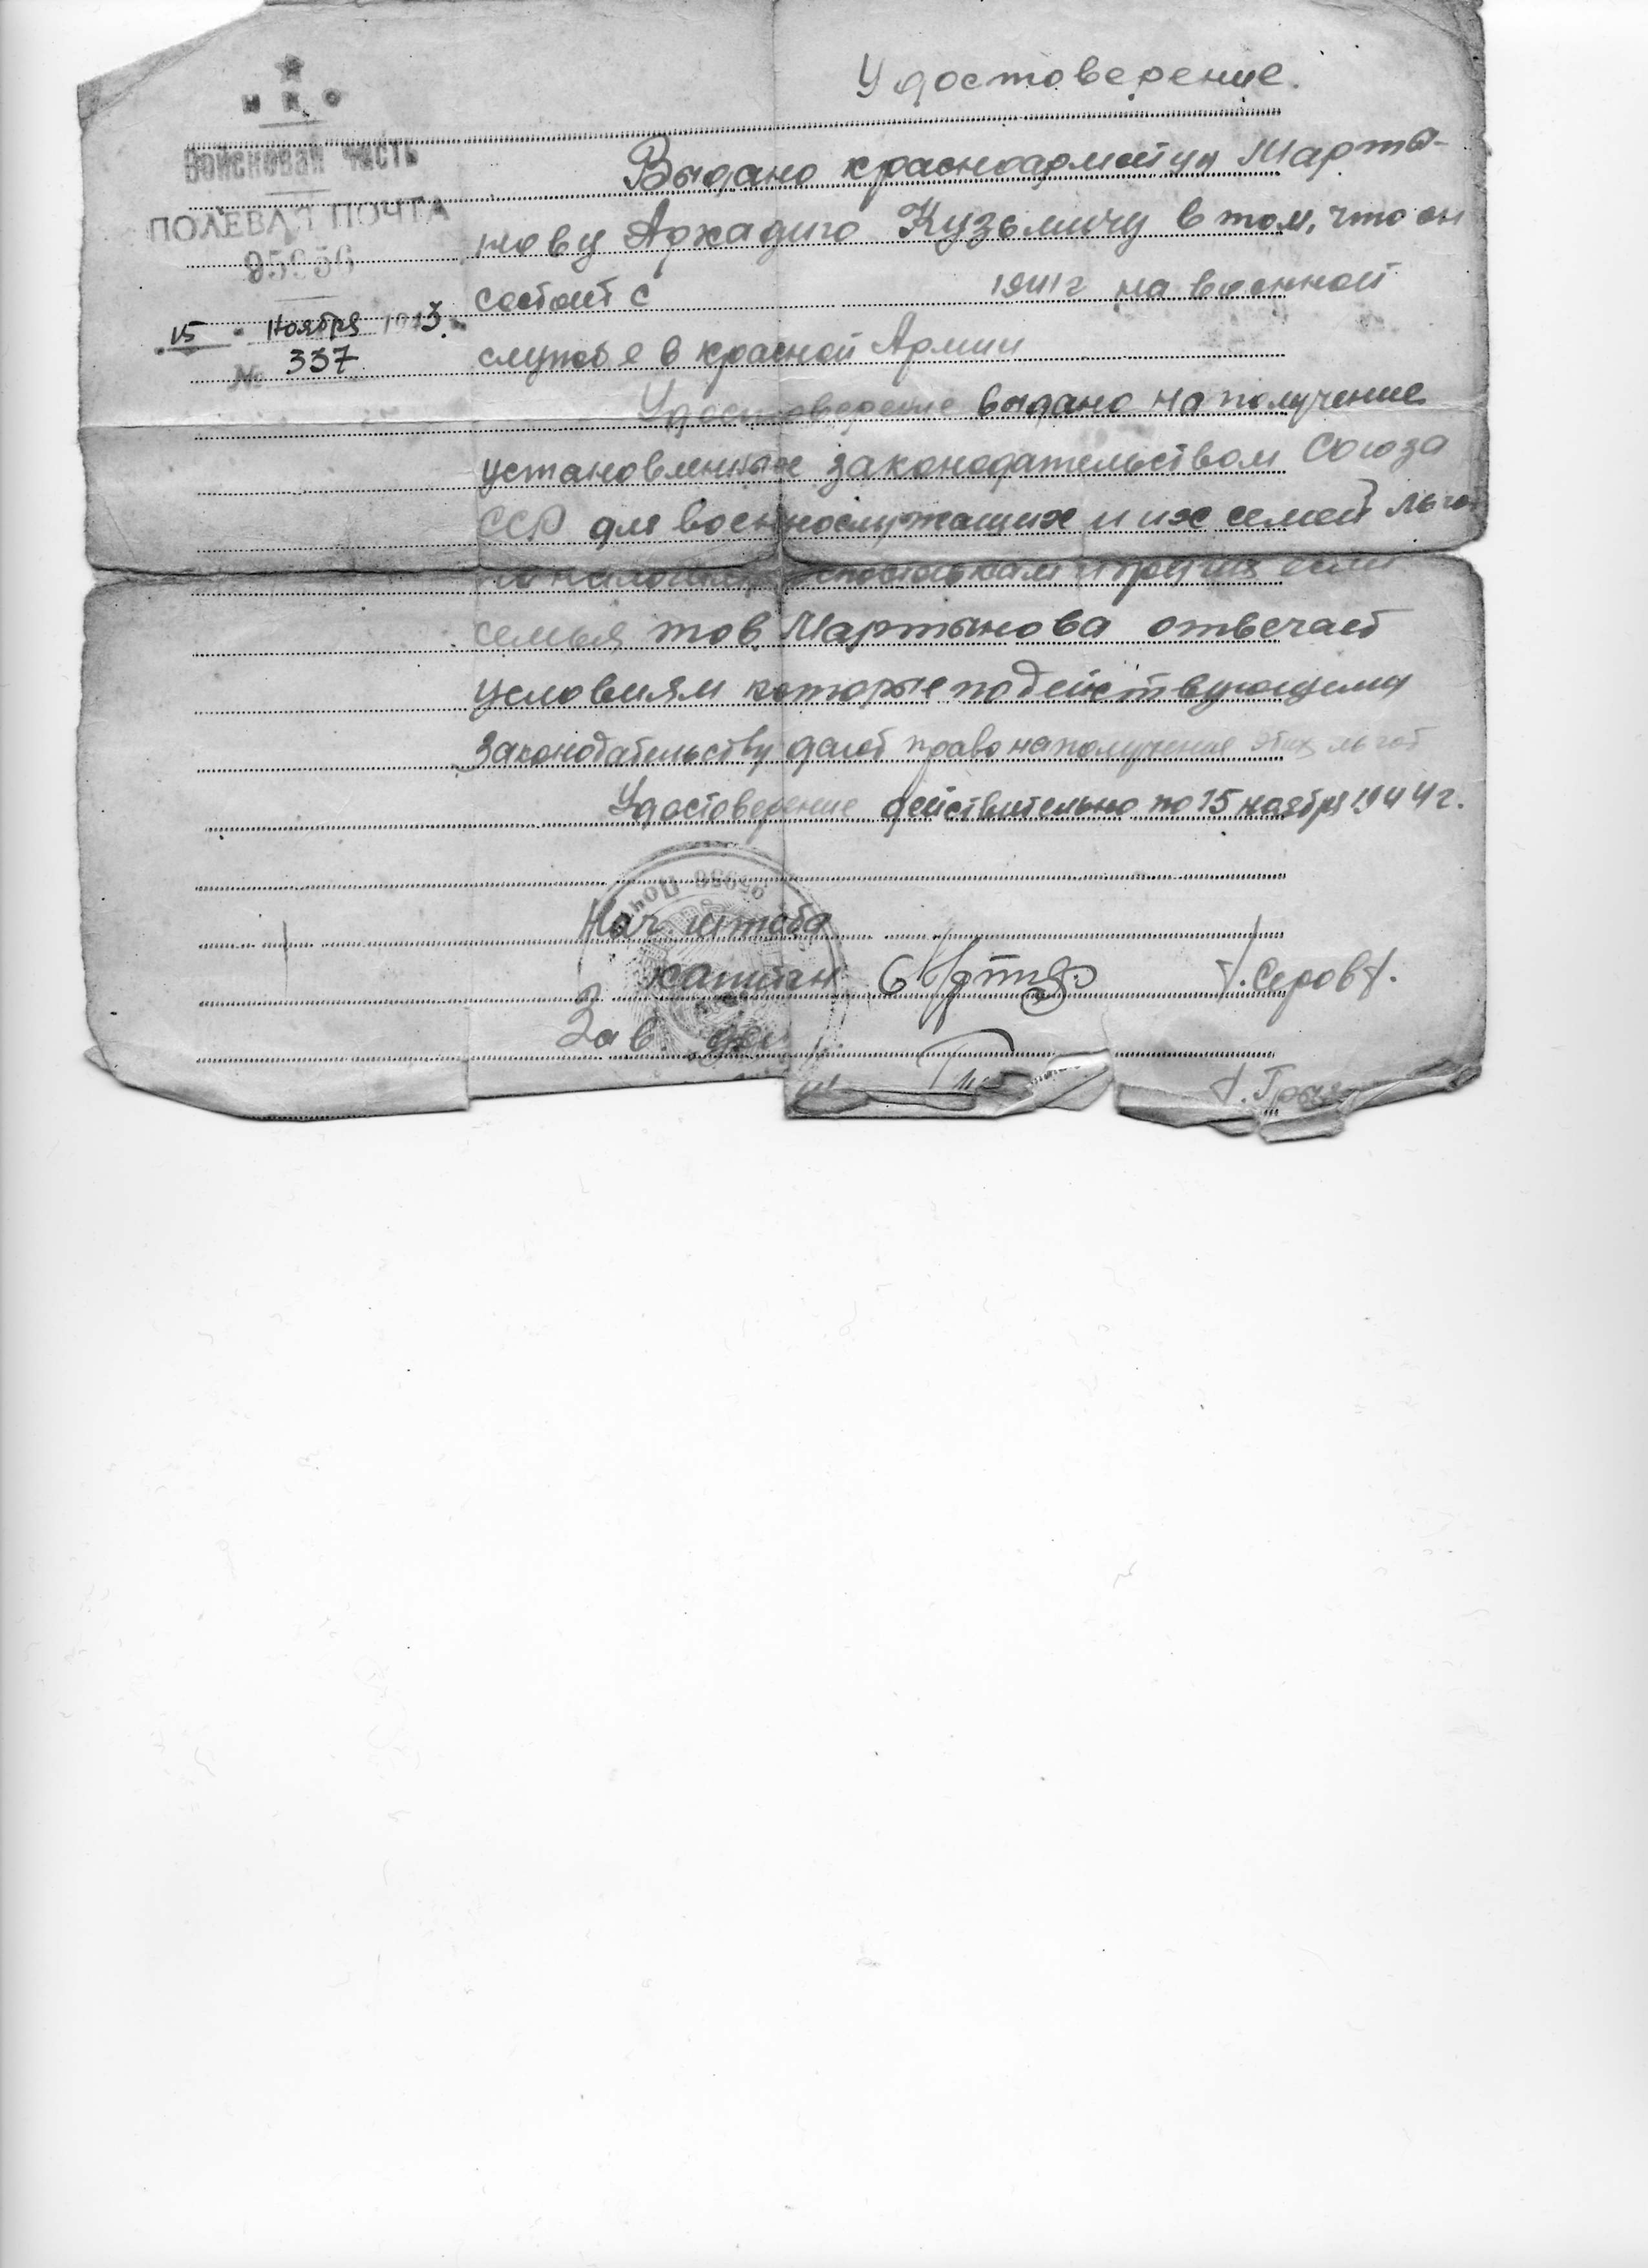 Удостоверение.
НКО
Войсковая часть
ПОЛЕВАЯ ПОЧТА
95936
15 ноября 1943
№ 337
Выдано красноармейцу Марты-
нову Аркадию Кузьмичу в том, что он
состоит с 1941 г на военной
службе в красной Армии
Удостоверение выдано на получение
установленных законодательством Союза
ССР для военнослужащих и их семей льгот
по и прочих если
семья тов. Мартынова отвечает
условиям которые по действующему
законодательству дают право на получения этих льгот
Удостоверение действительно по 15 ноября 1944 г.
Нач. штаба
капитан /.Серов/.
Зав. дел